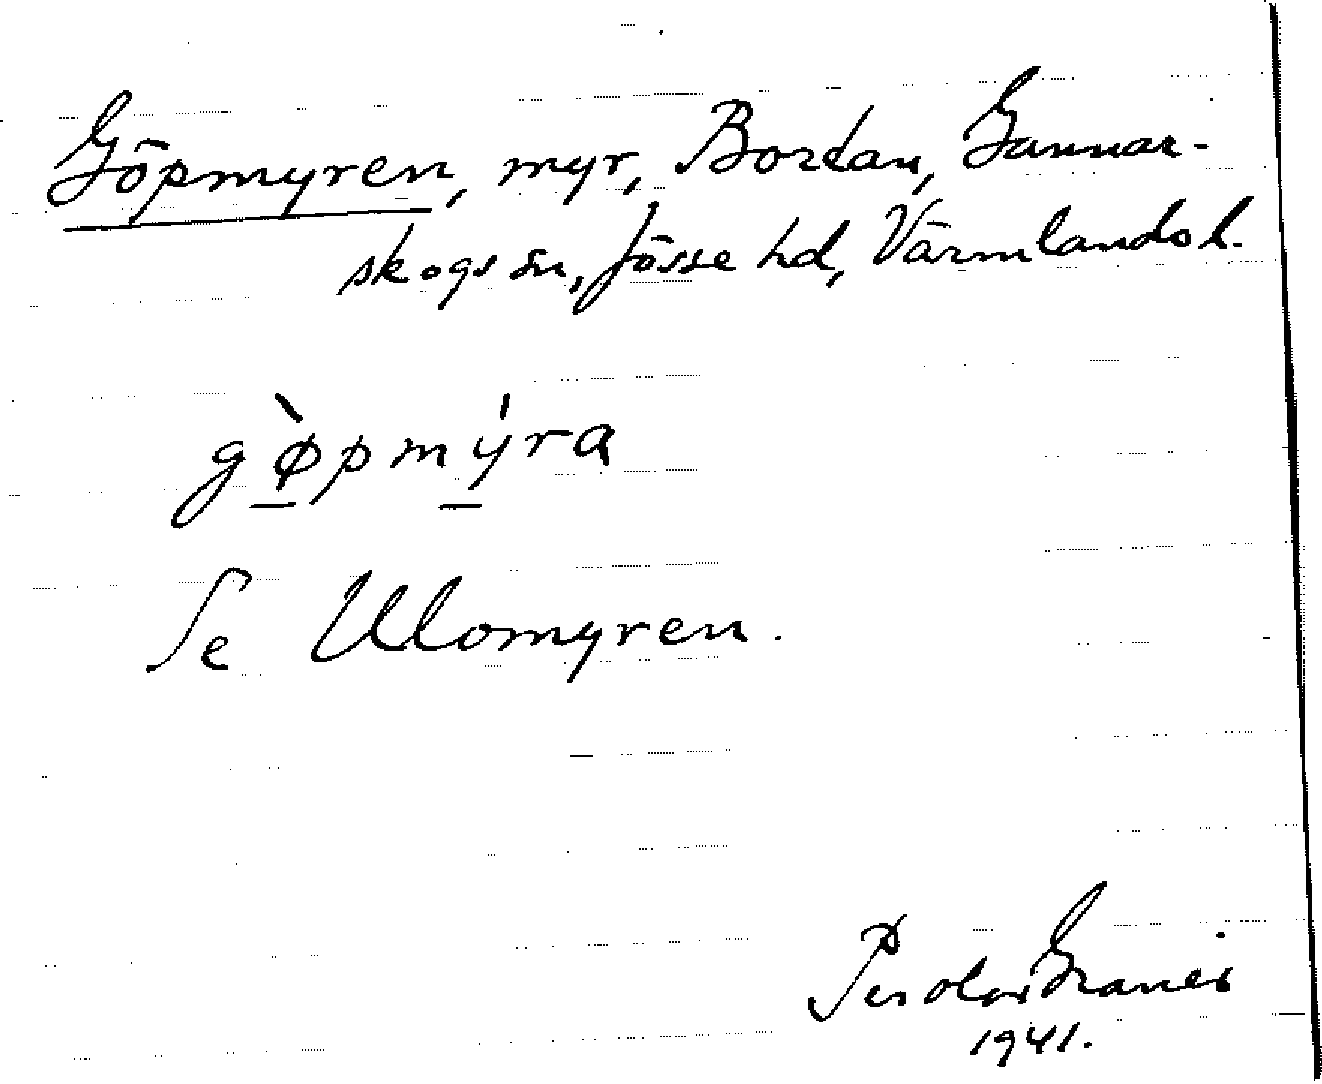 Göpmyren, myr, Bortan, Gunnar-
skogs sn, Jösse hd, Värmlands l.
gø̀pmýra
Se Ulomyren.
Perolof Graner
1941.